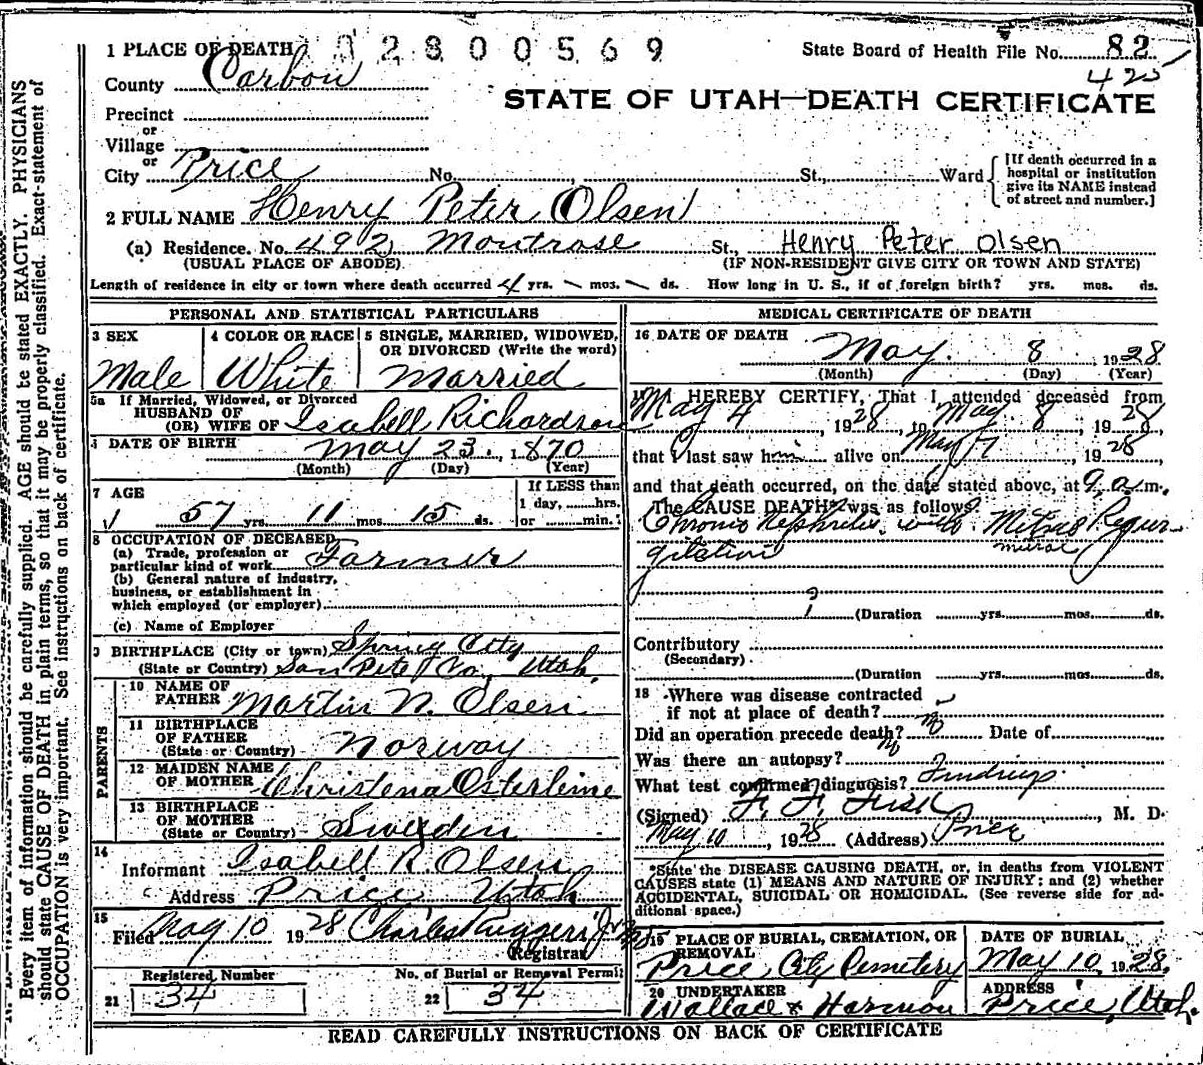 1 PLACE OF DEATH 02800569 State Board of Health File No. 82
County Carbon 425
STATE OF UTAH—DEATH CERTIFICATE
Precinct
or
Village
or
City Price No. , St., Ward {[If death occurred in a hospital or institution give its NAME instead of street and number.]
2 FULL NAME Henry Peter Olsen
(a) Residence. No. 492 Montrose St., Henry Peter Olsen
(USUAL PLACE OF ABODE) (IF NON-RESIDENT GIVE CITY OR TOWN AND STATE)
Length of residence in city or town where death occurred 4 yrs. — mos. — ds. How long in U. S., if of foreign birth? yrs. mos. ds.
PERSONAL AND STATISTICAL PARTICULARS
3 SEX 4 COLOR OR RACE 5 SINGLE, MARRIED, WIDOWED,
OR DIVORCED (Write the word)
Male White Married
5a If Married, Widowed, or Divorced
HUSBAND OF
(OR) WIFE OF Isabell Richardson
DATE OF BIRTH May 23, 1870
(Month) (Day) (Year)
7 AGE If LESS than
1 day, hrs.
57 yrs. 11 mos. 15 ds. or min.
8 OCCUPATION OF DECEASED
(a) Trade, profession or
particular kind of work Farmer
(b) General nature of industry,
business, or establishment in
which employed (or employer)
(c) Name of Employer
9 BIRTHPLACE (City or town) Spring City
(State or Country) San Pete Co, Utah.
PARENTS
10 NAME OF
FATHER Martin N. Olsen
11 BIRTHPLACE
OF FATHER
(State or Country) Norway
12 MAIDEN NAME
OF MOTHER Christena Osterline
13 BIRTHPLACE
OF MOTHER
(State or Country) Sweden
14
Informant Isabell R. Olsen
Address Price Utah
15
Filed May 10 1928 Charles Ruggeri Jr
Registrar
Registered Number No. of Burial or Removal Permit
21 34 22 34
MEDICAL CERTIFICATE OF DEATH
16 DATE OF DEATH
May 8 1928
(Month) (Day) (Year)
HEREBY CERTIFY, That I attended deceased from
May 4, 1928, to May 8, 1928,
that I last saw him alive on May 7, 1928,
and that death occurred, on the date stated above, at 9 a.m.
The CAUSE DEATH* was as follows:
Chronic Nephritis with Mitral Regur-
gitation
mitral
? (Duration yrs. mos. ds.
Contributory
(Secondary)
(Duration yrs. mos. ds.
18 Where was disease contracted
if not at place of death?
Did an operation precede death? No Date of
Was there an autopsy? No
What test confirmed diagnosis? Findings.
(Signed) F. F. Fisk, M. D.
May 10, 1928 (Address) Price
*State the DISEASE CAUSING DEATH, or, in deaths from VIOLENT
CAUSES state (1) MEANS AND NATURE OF INJURY; and (2) whether
ACCIDENTAL, SUICIDAL OR HOMICIDAL. (See reverse side for ad-
ditional space.)
19 PLACE OF BURIAL, CREMATION, OR REMOVAL DATE OF BURIAL
Price City Cemetery May 10, 1928.
20 UNDERTAKER ADDRESS
Wallace & Harmon Price, Utah.
READ CAREFULLY INSTRUCTIONS ON BACK OF CERTIFICATE
Every item of information should be carefully supplied. AGE should be stated EXACTLY. PHYSICIANS
should state CAUSE OF DEATH in plain terms, so that it may be properly classified. Exact statement of
OCCUPATION is very important. See instructions on back of certificate.